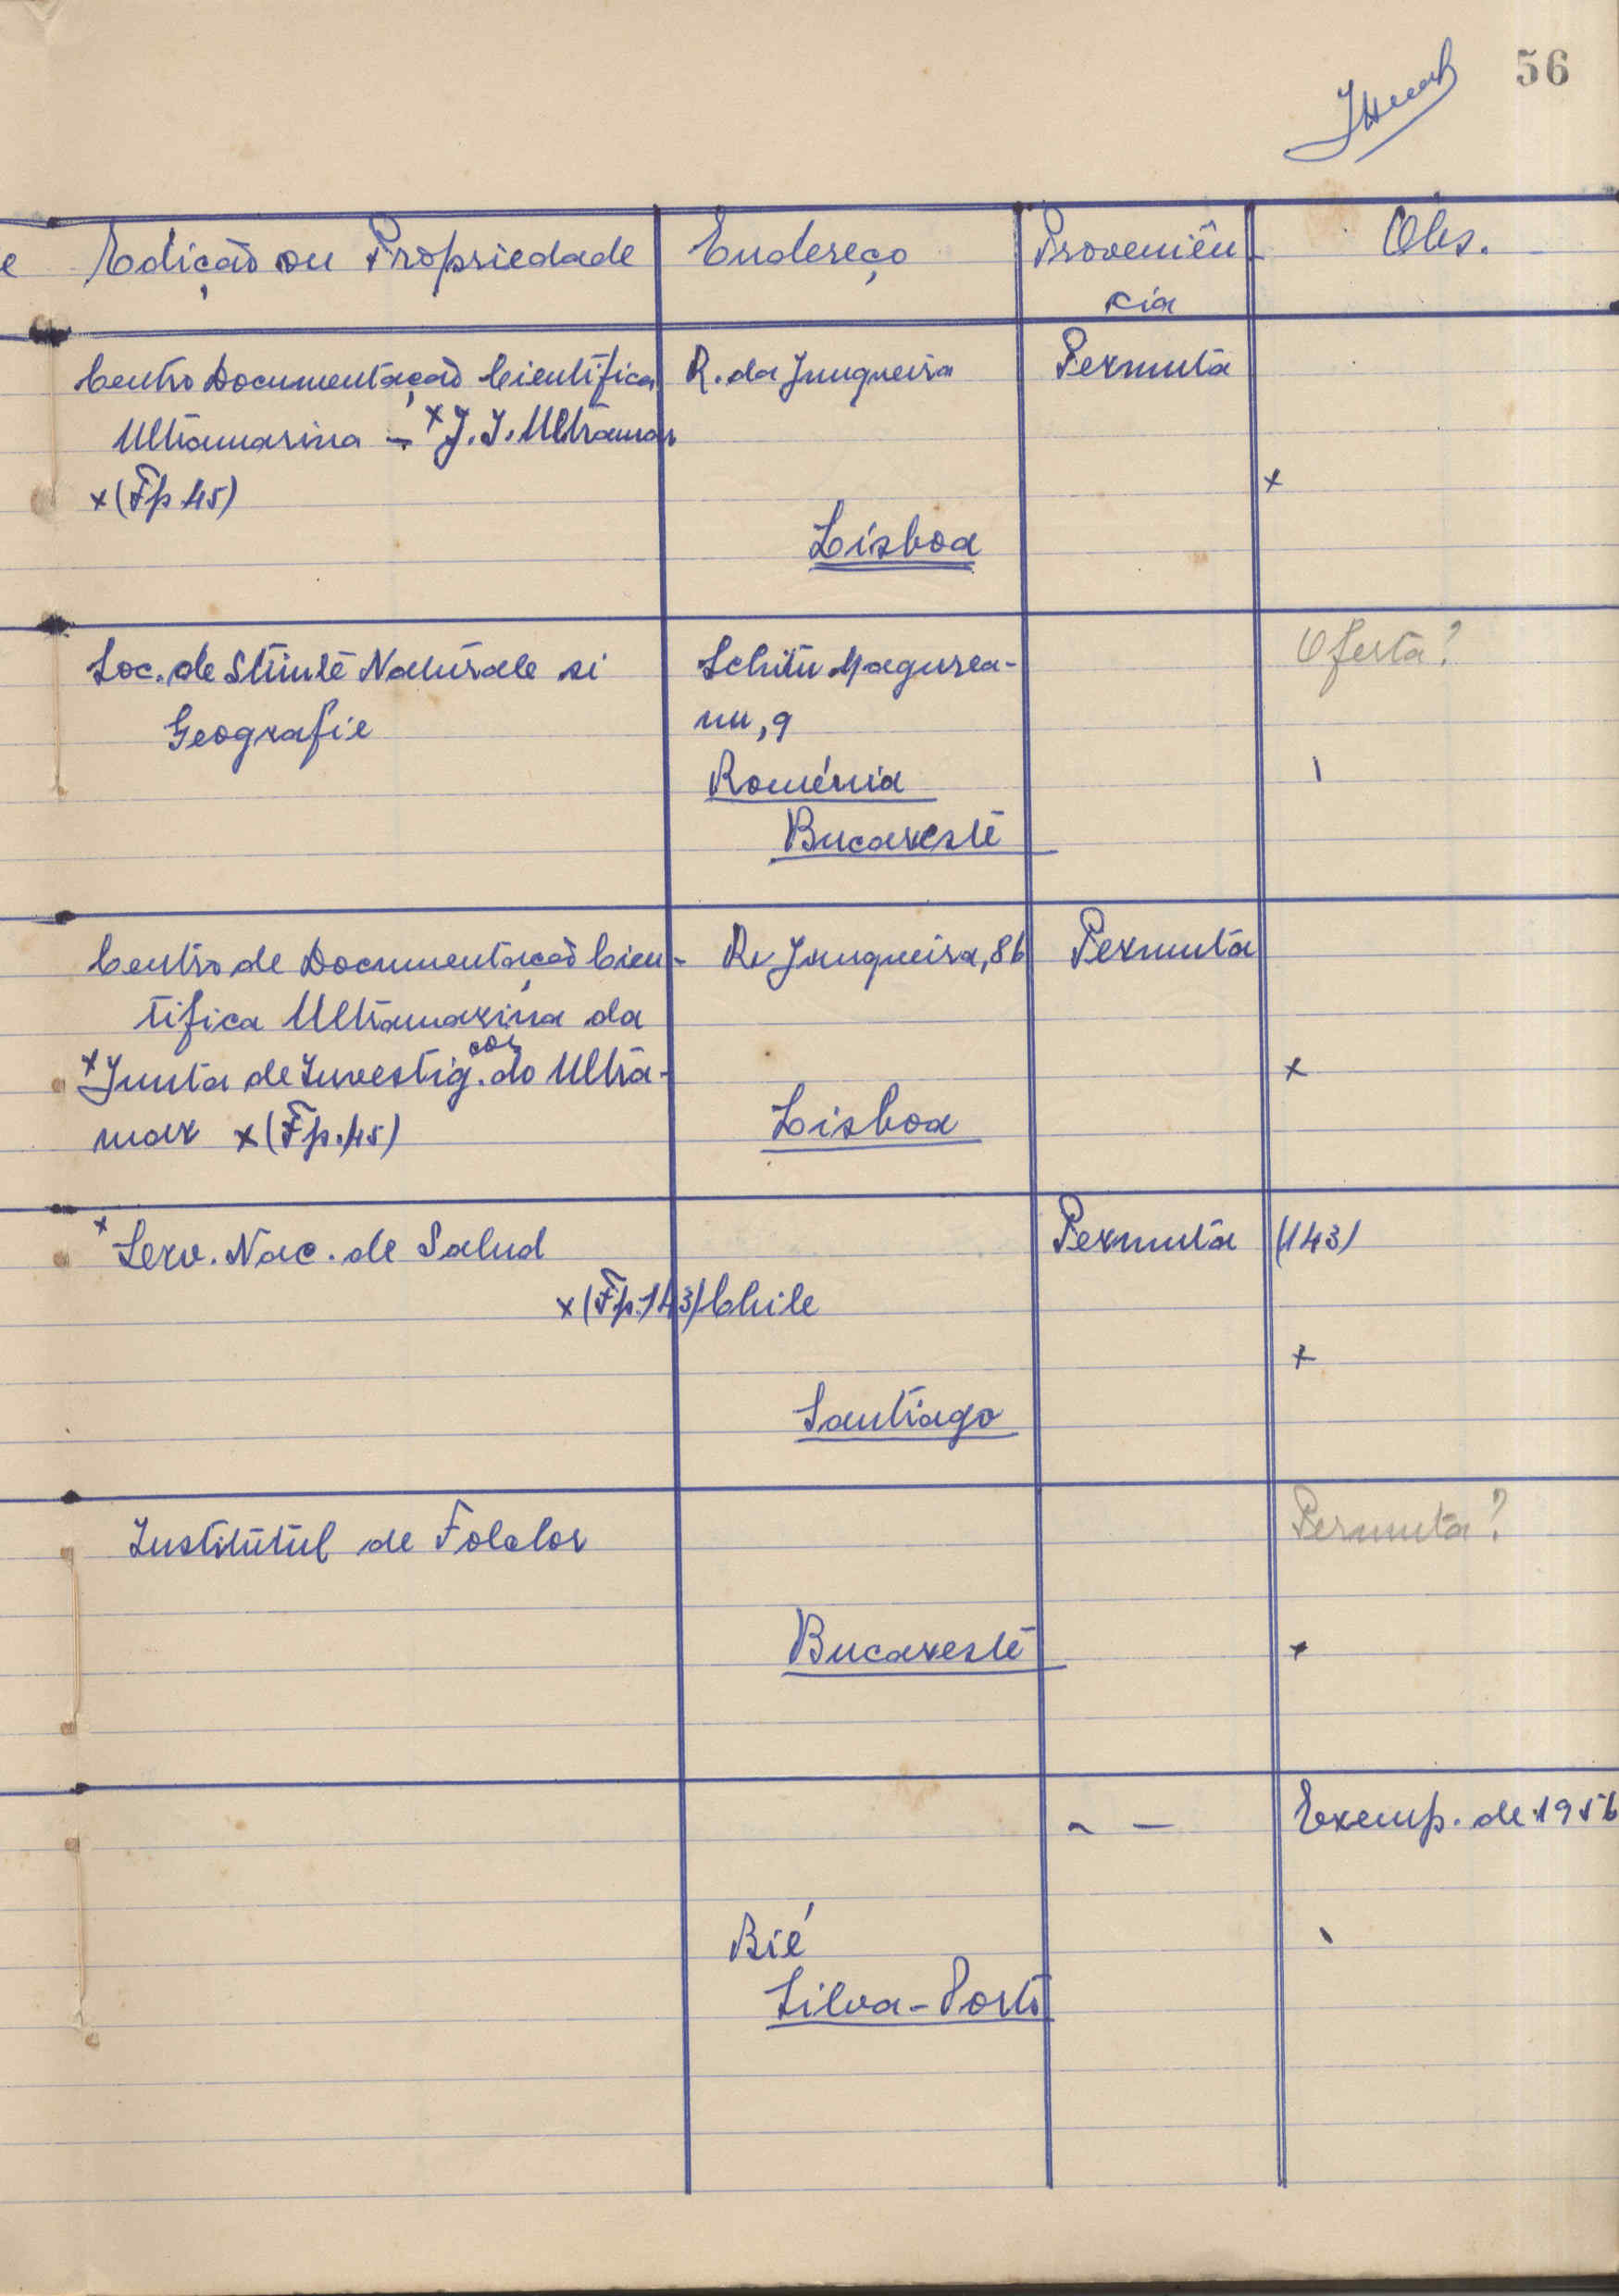 56
e Edição ou Propriedade Endereço Proveniên-
cia Obs.
Centro Documentação Cientifica R. da Junqueira Permuta
Ultramarina - x J. I. Ultramar
x (Fp 45) x
Lisboa
Soc. de Stiinte Naturale si Schitu Magurea- Oferta?
Geografie nu, 9
Roménia
Bucareste
Centro de Documentação Cien- R. Junqueira, 86 Permuta
tifica Ultramarina da
x Junta de Investig. ções do Ultra- x
mar x (Fp. 45) Lisboa
x Serv. Nac. de Salud Permuta (143)
x (Fp. 143) Chile
x
Santiago
Institutul de Folclor Permuta?
Bucareste x
- - Exemp. de 1956
Bié
Silva-Porto